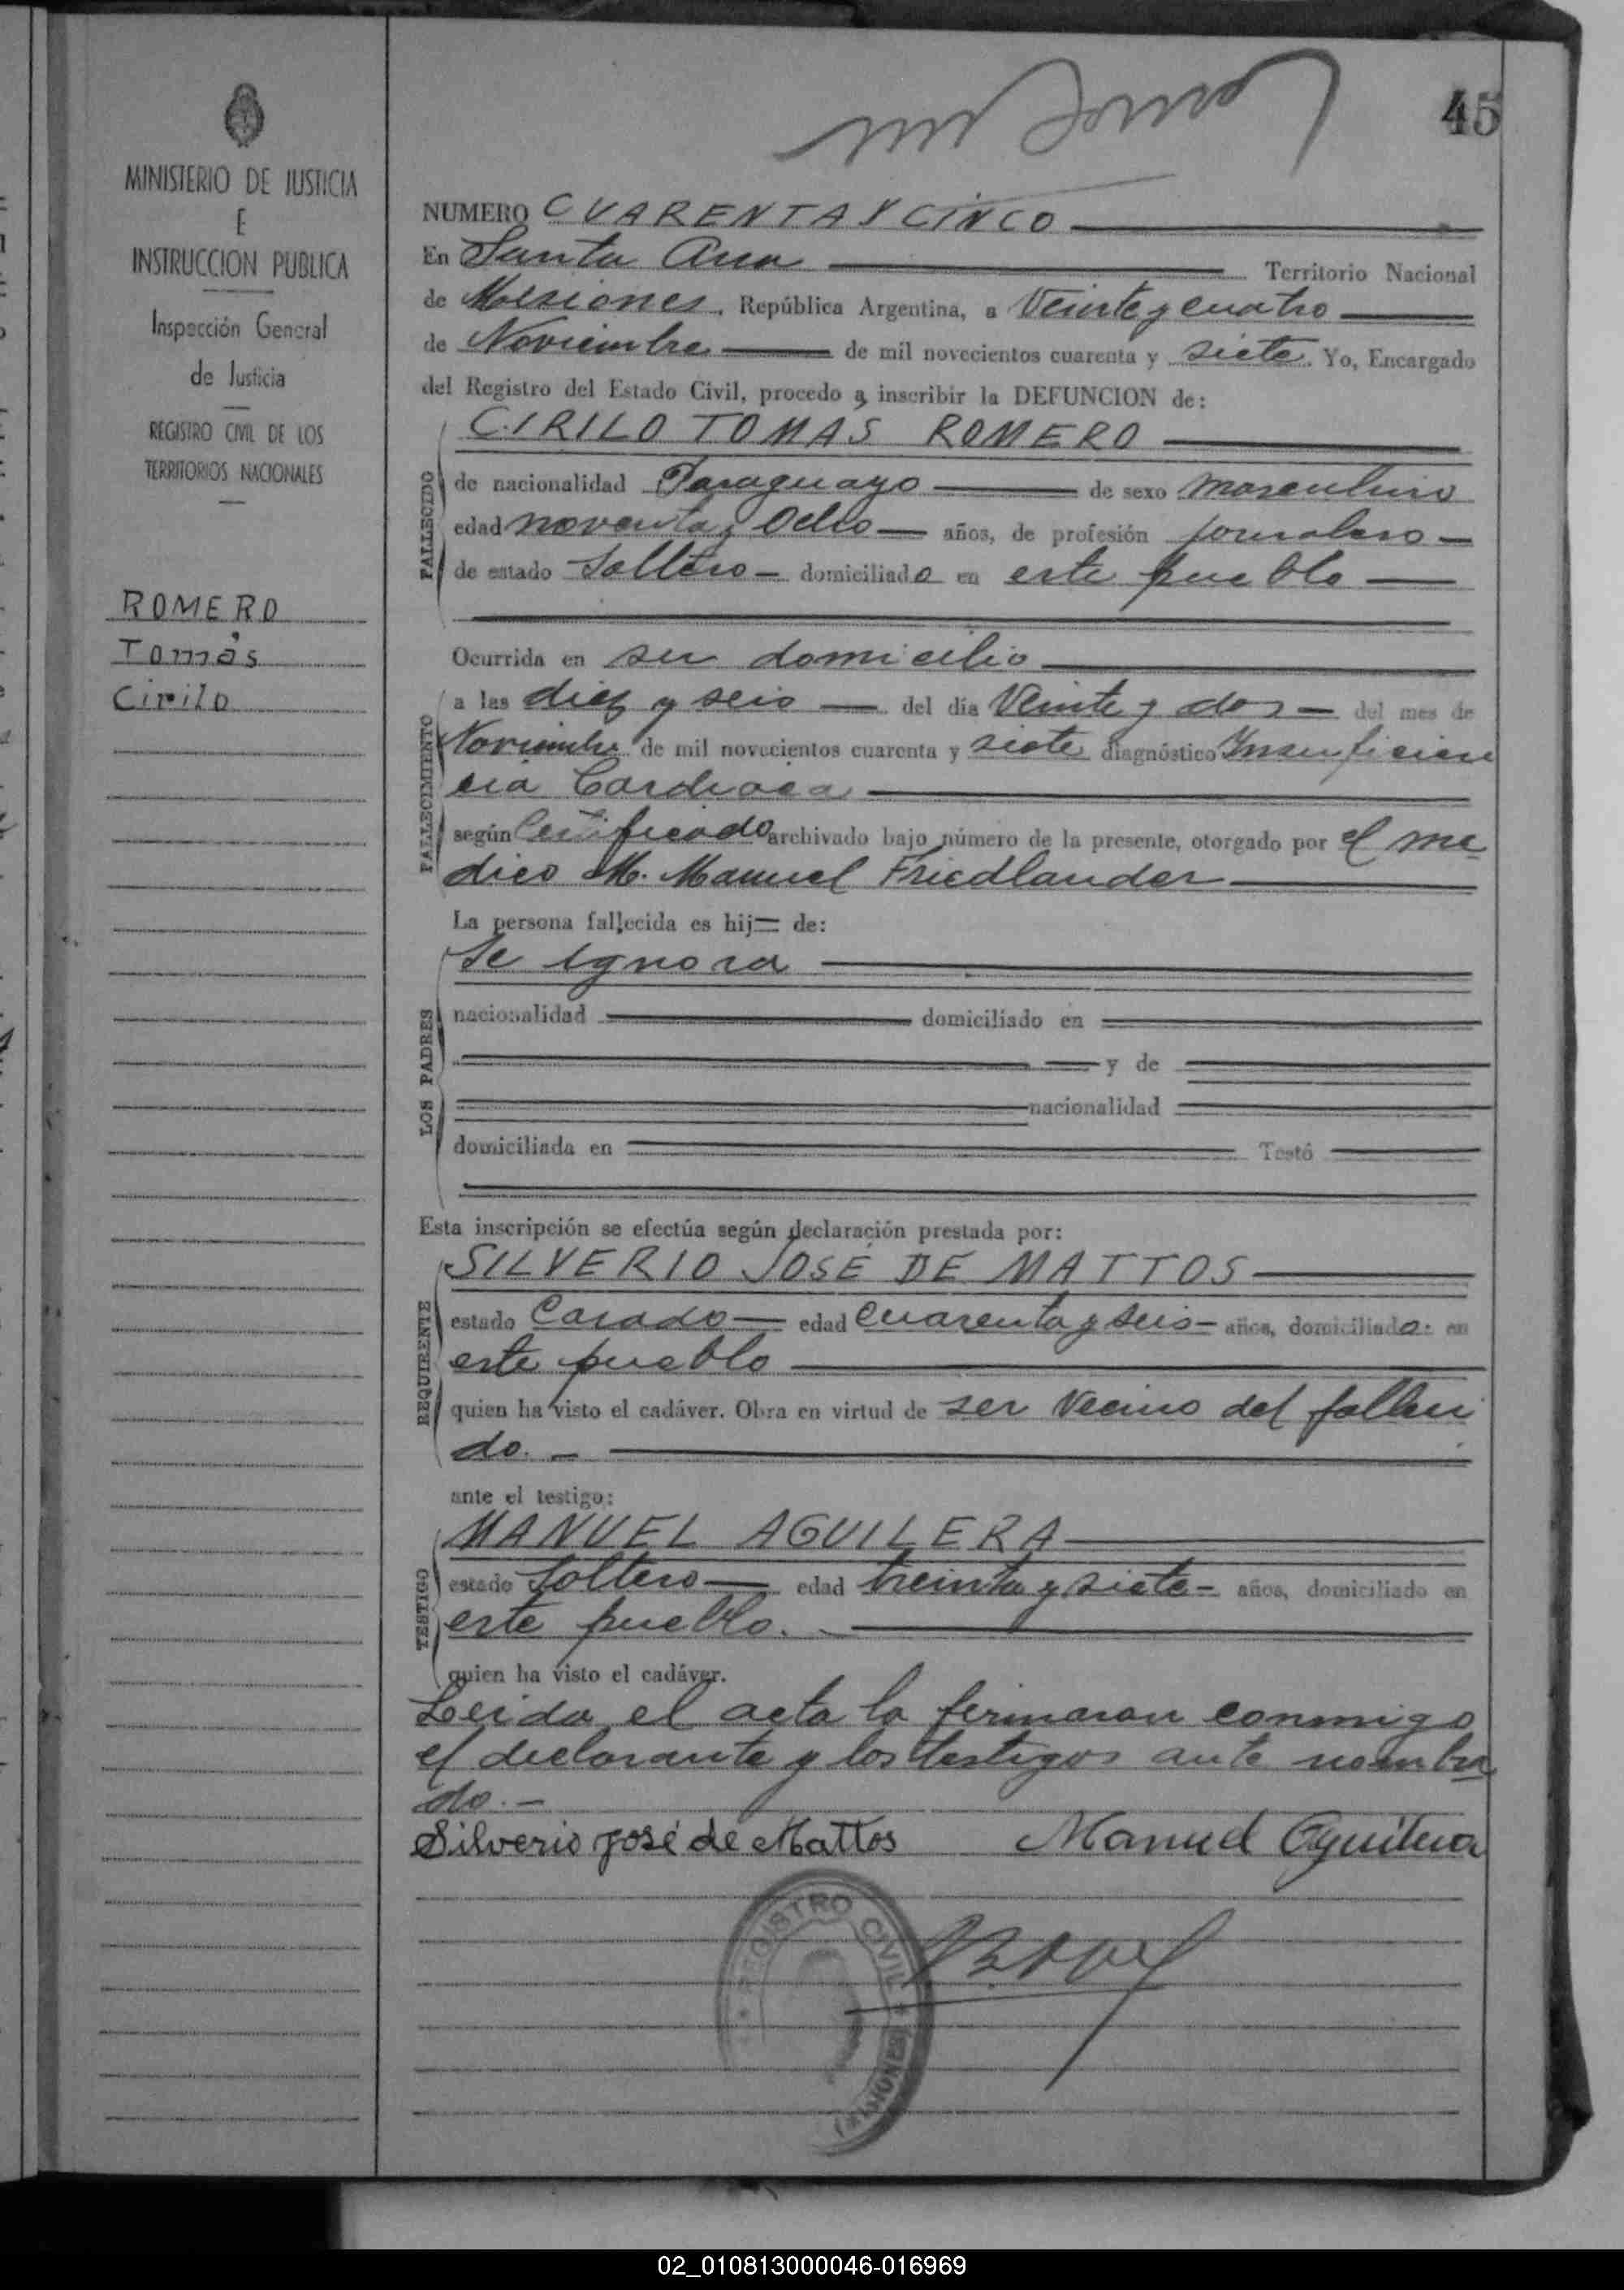 45
MINISTERIO DE JUSTICIA
E
INSTRUCCION PUBLICA
Inspección General
de Justicia
REGISTRO CIVIL DE LOS
TERRITORIOS NACIONALES
ROMERO
Tomás
Cirilo
NUMERO CUARENTA Y CINCO
En Santa Ana Territorio Nacional
de Misiones, República Argentina, a Veinte y cuatro
de Noviembre de mil novecientos cuarenta y siete. Yo, Encargado
del Registro del Estado Civil, procedo a inscribir la DEFUNCION de:
CIRILO TOMAS ROMERO
FALLECIDO
de nacionalidad Paraguayo de sexo masculino
edad noventa y Ocho años, de profesión jornalero
de estado Soltero domiciliado en este pueblo
Ocurrida en su domicilio
FALLECIMIENTO
a las diez y seis del día Veinte y dos del mes de
Noviembre de mil novecientos cuarenta y siete diagnóstico Insuficien
cia Cardiaca
según Certificado archivado bajo número de la presente, otorgado por el me
dico M. Manuel Friedlander
La persona fallecida es hij= de:
LOS PADRES
Se Ignora
nacionalidad domiciliado en
y de
nacionalidad
domiciliada en Testó
Esta inscripción se efectúa según declaración prestada por:
REQUIRENTE
SILVERIO JOSÉ DE MATTOS
estado Casado edad Cuarenta y seis años, domiciliado en
este pueblo
quien ha visto el cadáver. Obra en virtud de ser Vecino del falleci
do.
ante el testigo:
TESTIGO
MANUEL AGUILERA
estado Soltero edad treinta y siete años, domiciliado en
este pueblo.
quien ha visto el cadáver.
Leida el acta la firmaron conmigo
el declarante y los testigos ante nombra
do.-
Silverio José de Mattos Manuel Aguilera
REGISTRO CIVIL
(MISIONES)
02_010813000046-016969